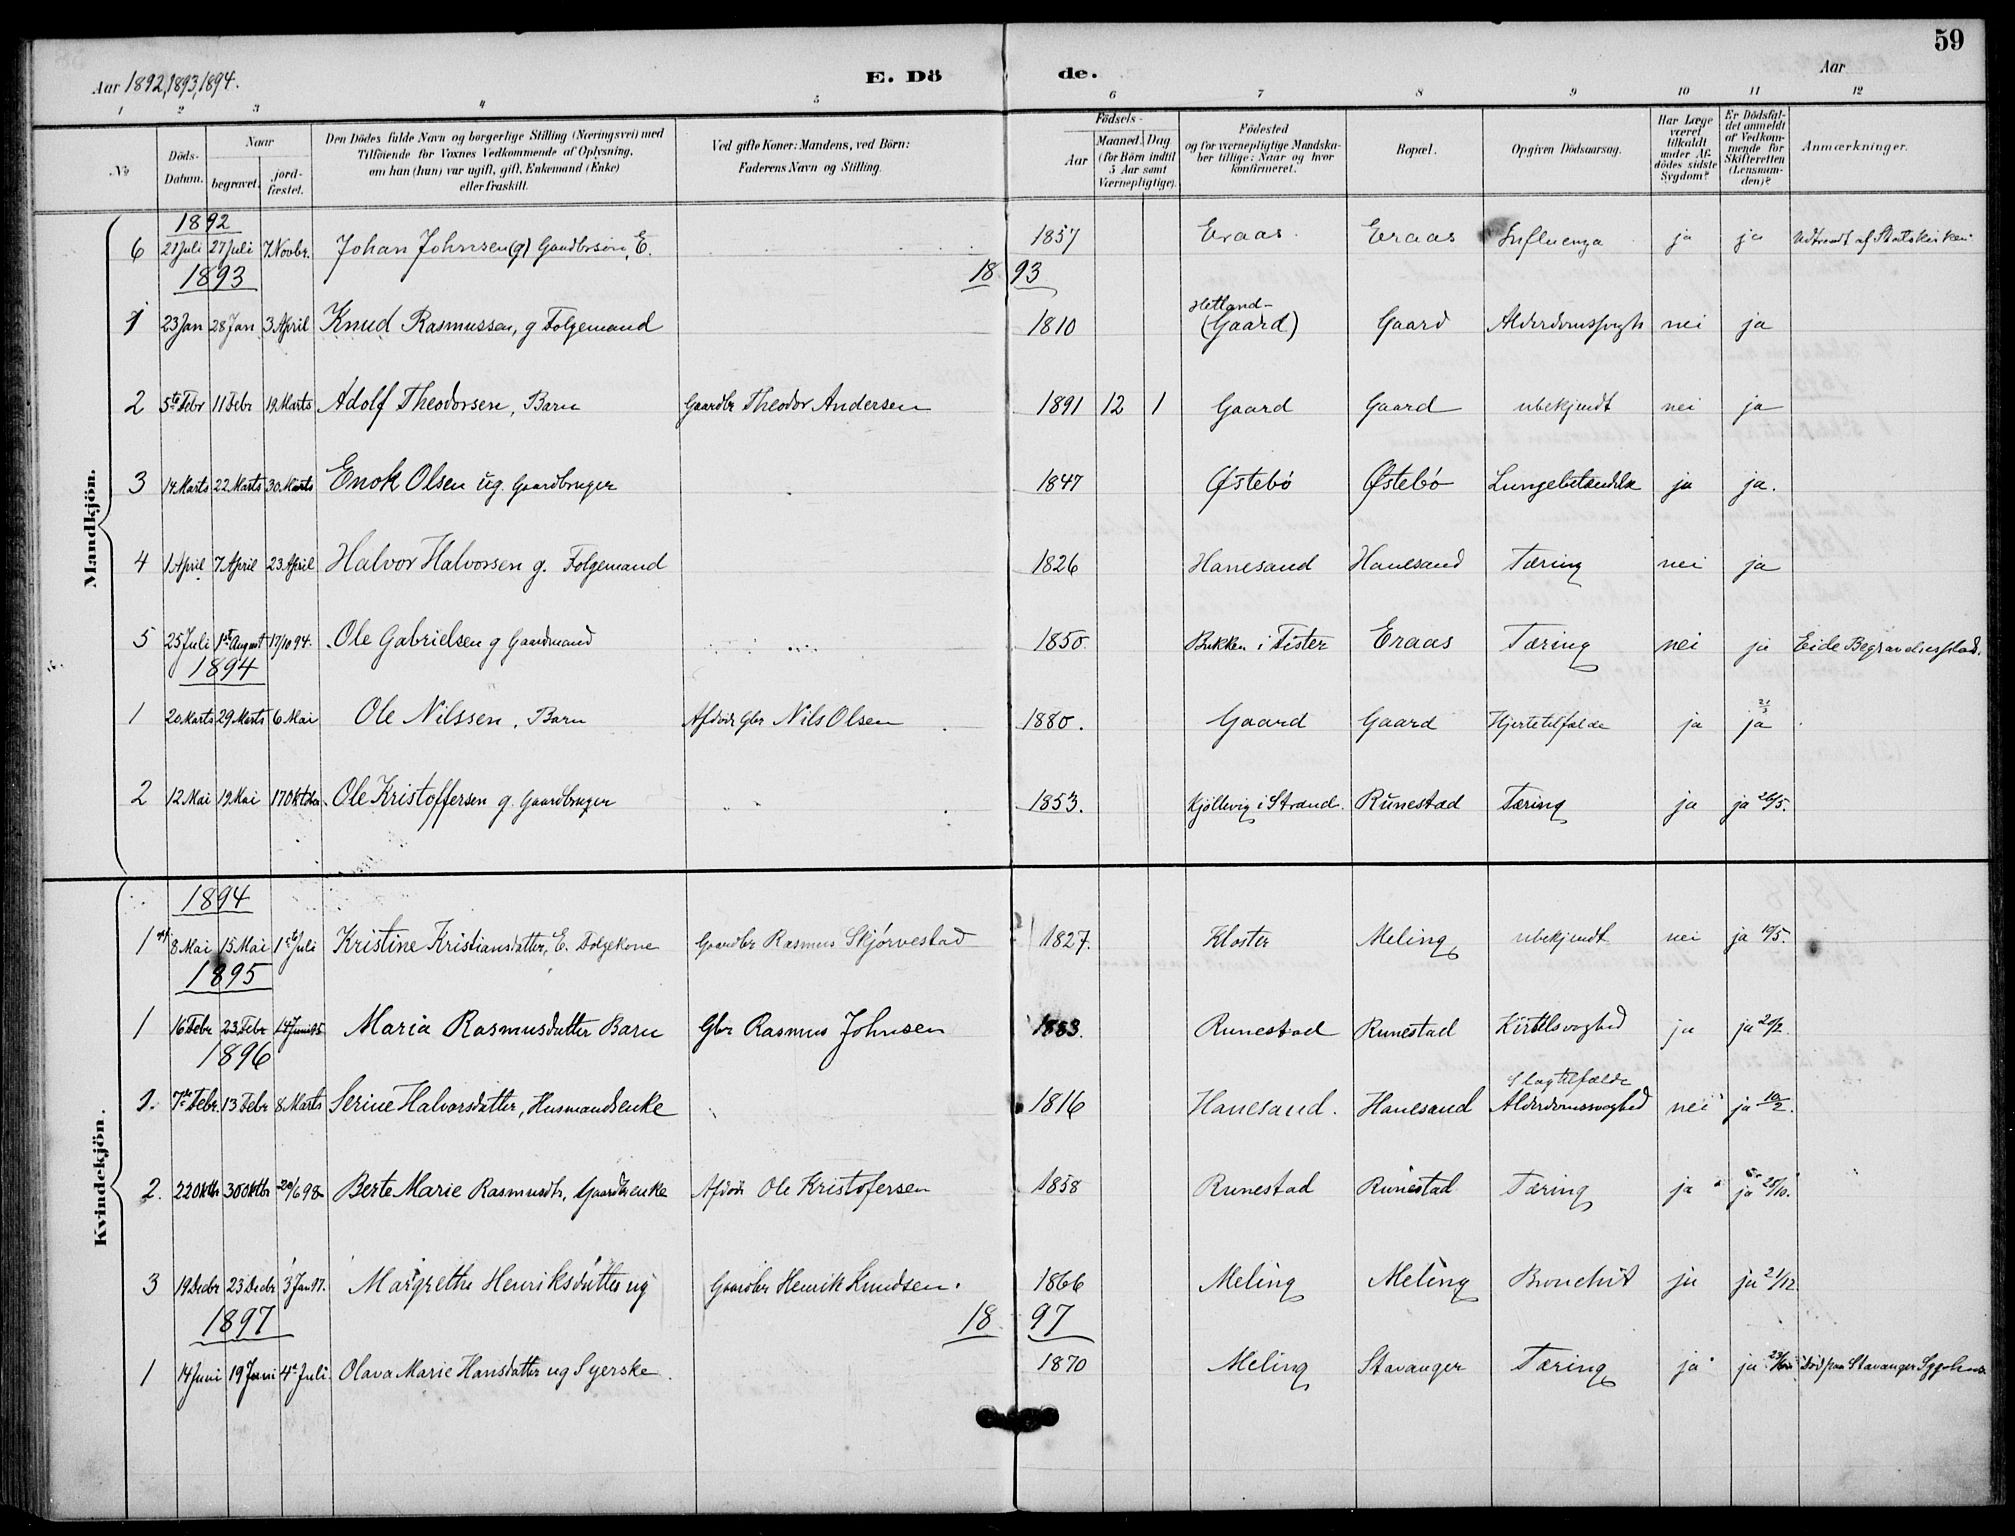 59
Aar 1892, 1893, 1894.
E. Dö de.
Aar
1 2 3 4 5 6 7 8 9 10 11 12
No
Döds-Datum.
Naar
begravet.
jord-fæstet.
Den Dödes fulde Navn og borgerlige Stilling (Næringsvei) med
Tilföiende for Voxnes Vedkommende af Oplysning,
om han (hun) var ugift, gift, Enkemand (Enke)
eller fraskilt.
Ved gifte Koner: Mandens, ved Börn:
Faderens Navn og Stilling.
Födsels-
Aar
Maaned. Dag
(for Börn indtil
5 Aar samt
Værnepligtige).
Födested
og for værnepligtige Mandska-
ber tillige: Naar og hvor
konfirmeret.
Bopæl.
Opgiven Dödsaarsag.
Har Læge
været
tilkaldt
under Af-
dödes sidste
Sygdom?
Er Dödsfal-
det anmeldt
af Vedkom-
mende for
Skifteretten
(Lensman-
den)?
Anmærkninger.
Mandkjön.
1892
6 21 Juli 27 Juli 7 Novbr. Johan Johnsen (g) Gaardbrsön, E. 1857 Eraas. Eraas Influenza ja ja Udtraadt af Statskirken
1893 1893
1 23 Jan 28 Jan 3 April Knud Rasmussen, g Folgemand 1810 Hetland- (Gaard) Gaard Alderdomssvagh nei ja
2 5te Febr 11 Febr 19 Marts Adolf Theodorsen, Barn Gaardbr Theodor Andersen 1891 12 1 Gaard Gaard ubekjendt nei ja
3 14 Marts 22 Marts 30 Marts Enok Olsen ug. Gaardbruger 1847 Østebö Østebö Lungebetændelse ja ja.
4 1 April 7 April 23 April Halvor Halvorsen g. Folgemand 1826 Hanesand Hanesand Tæring nei ja
5 25 Juli 1ste August 17/10 94. Ole Gabrielsen g Gaardmand 1850. Bukken i Fister Eraas Tæring nei ja Eide Begravelsesplads.
1894
1 20 Marts 29 Marts 6 Mai Ole Nilssen, Barn Afdöde Gbr Nils Olsen 1880. Gaard Gaard Hjertetilfælde ja ja
2 12 Mai 19 Mai 17 Oktober Ole Kristoffersen g. Gaardbruger 1853. Kjöllevig i Strand. Runestad Tæring ja ja 26/5.
Kvindekjön.
1894
1 8 Mai 15 Mai 1ste Juli Kristine Kristiansdatter, E. Folgekone Gaardbr Rasmus Skjørvestad 1827. Kloster Meling ubekjendt nei ja 19/5.
1895
1 16 Febr 23 Febr 14 Juni 95 Maria Rasmusdatter Barn Gbr Rasmus Johnsen 1883. Runestad Runestad Kirtelsvaghed ja ja 20/2.
1896
1. 7de Febr 13 Febr 8 Marts Serine Halvorsdatter, Husmandsenke 1816 Hanesand. Hanesand Slagtilfælde Alderdomssvaghed nei ja 10/2.
2. 22 Oktb 30 Oktb 20/6 98 Berte Marie Rasmusdtr, Gaardbrenke Afdöde Ole Kristofersen 1858 Runestad Runestad Tæring ja ja 28/10.
3 19 Decbr 23 Decbr 3 Jan 97. Margrethe Henriksdatter ug Gaardbr Henrik Knudsen. 1866 Meling Meling Bronchit ja ja 21/12.
1897 1897
1 14 Juni 19 Juni 4de Juli Olava Marie Hansdatter ug Syerske. 1870 Meling Stavanger Tæring ja ja Död paa Stavanger Sygehus